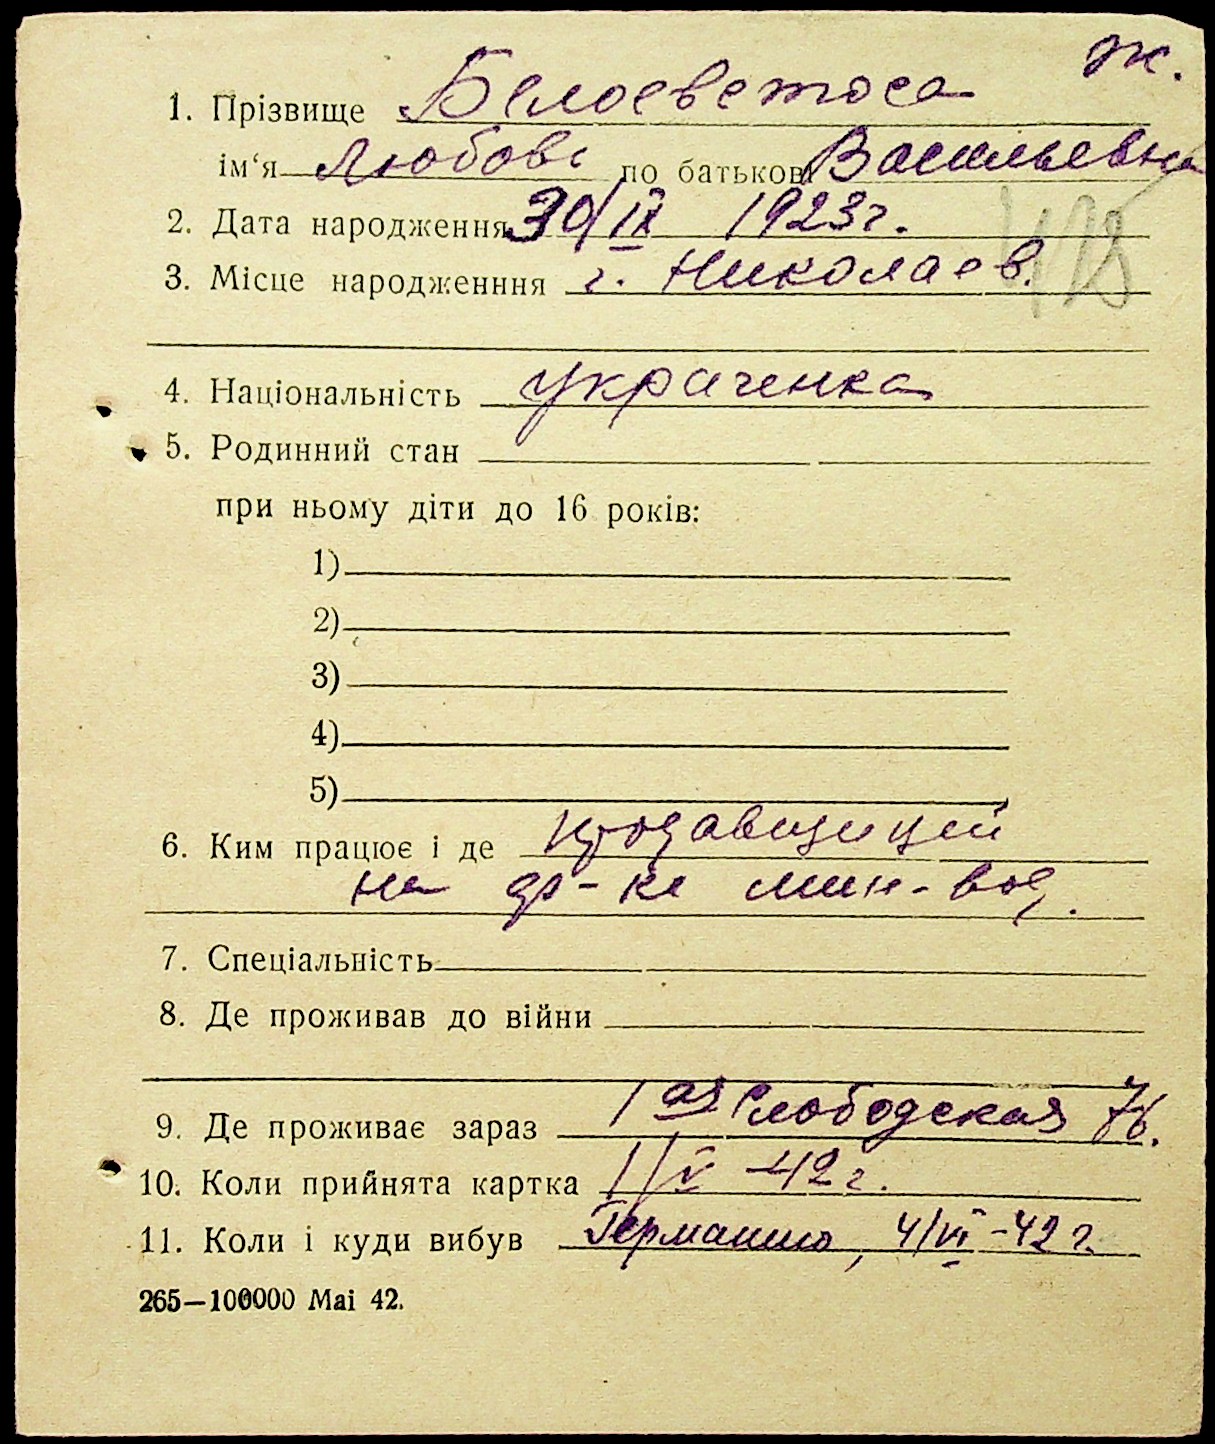 ж.
1. Прізвище Белосветова
ім‘я Любовь по батькові Васильевна
2. Дата народження 30/IX 1923 г.
3. Місце народженння г. Николаев.
4. Національність украиенка
5. Родинний стан
при ньому діти до 16 років:
1)
2)
3)
4)
5)
6. Ким працює і де продавщицей
на ф-ке мин-вод.
7. Спеціальність
8. Де проживав до війни
9. Де проживає зараз 1ая Слободская 76.
10. Коли прийнята картка 1/V-42 г.
11. Коли і куди вибув Германию, 4/VI-42 г.
265—100000 Mai 42.